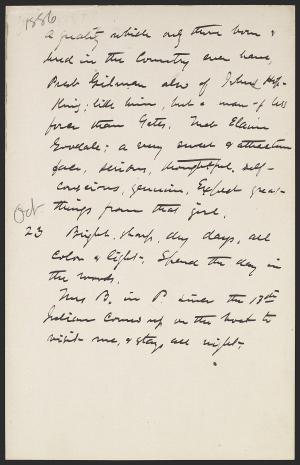 1886
a quality which only those born &
bred in the Country ever have,
Prest Gilman also of Johns Hop-
kins; like him, but a man of less
force than Gates. Met Elaine
Goodale; a very sweet & attractive
face, serious, thoughtful, self-
conscious, genuine, Expect great
things from that girl.
Oct
23 Bright, sharp, dry days, all
Color & light. Spend the day in
the woods.
Mrs B. in P. since the 17th
Indian Comes up on the boat to
visit me, & stays all night.